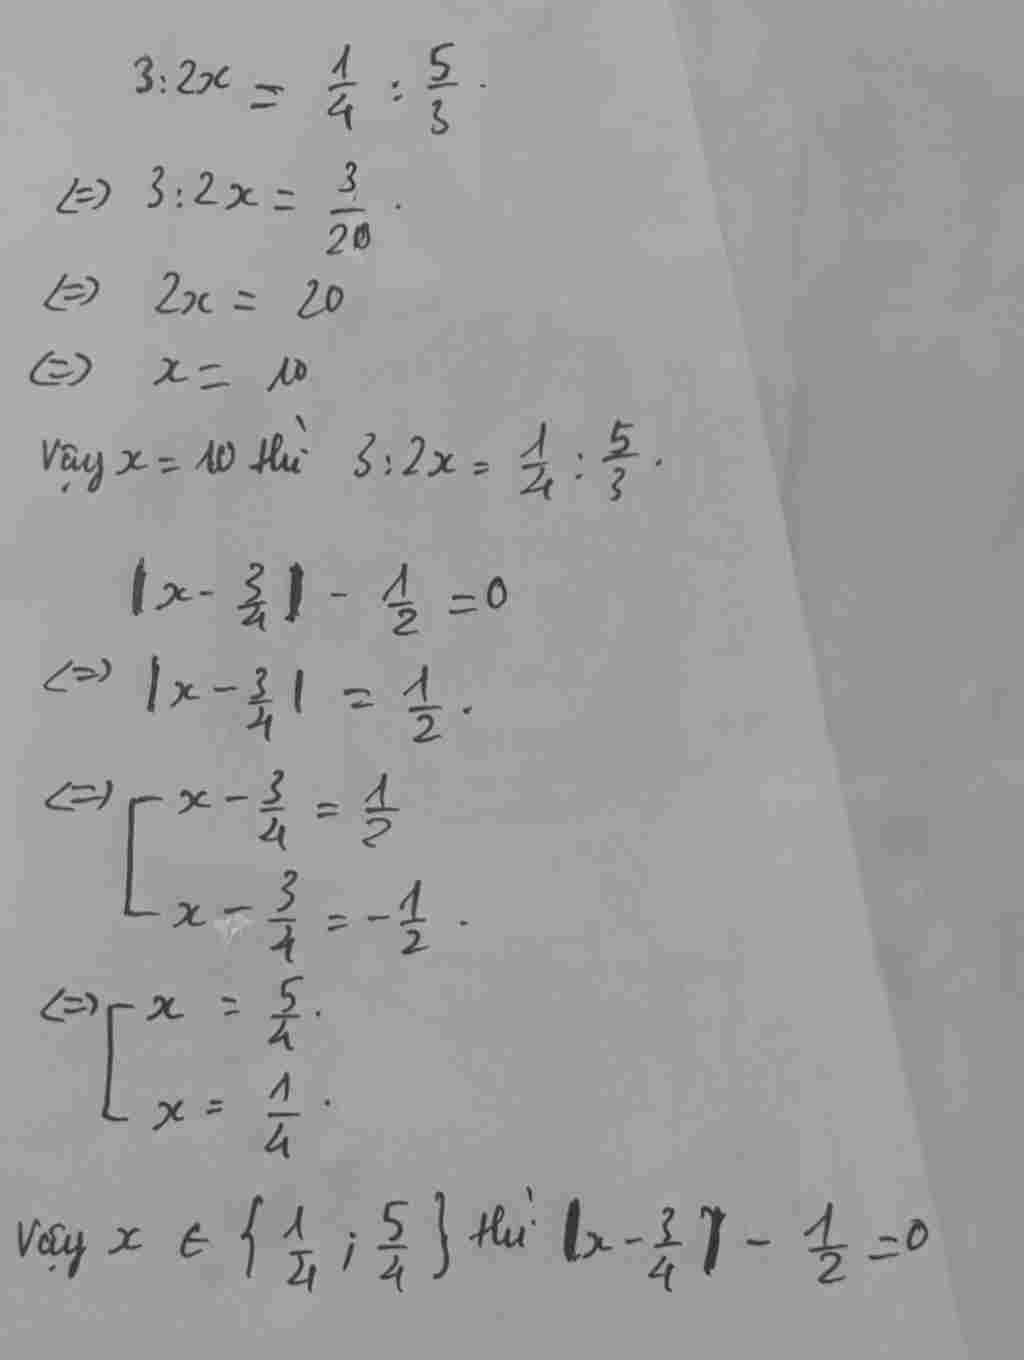 3:2x = 1/4 : 5/3.
<=> 3:2x = 3/20.
<=> 2x = 20
<=> x = 10
Vậy x = 10 thì 3:2x = 1/4 : 5/3.
|x - 3/4| - 1/2 = 0
<=> |x - 3/4| = 1/2.
<=> [ x - 3/4 = 1/2
x - 3/4 = -1/2.
<=> [ x = 5/4.
x = 1/4.
Vậy x ∈ {1/4 ; 5/4} thì |x - 3/4| - 1/2 = 0